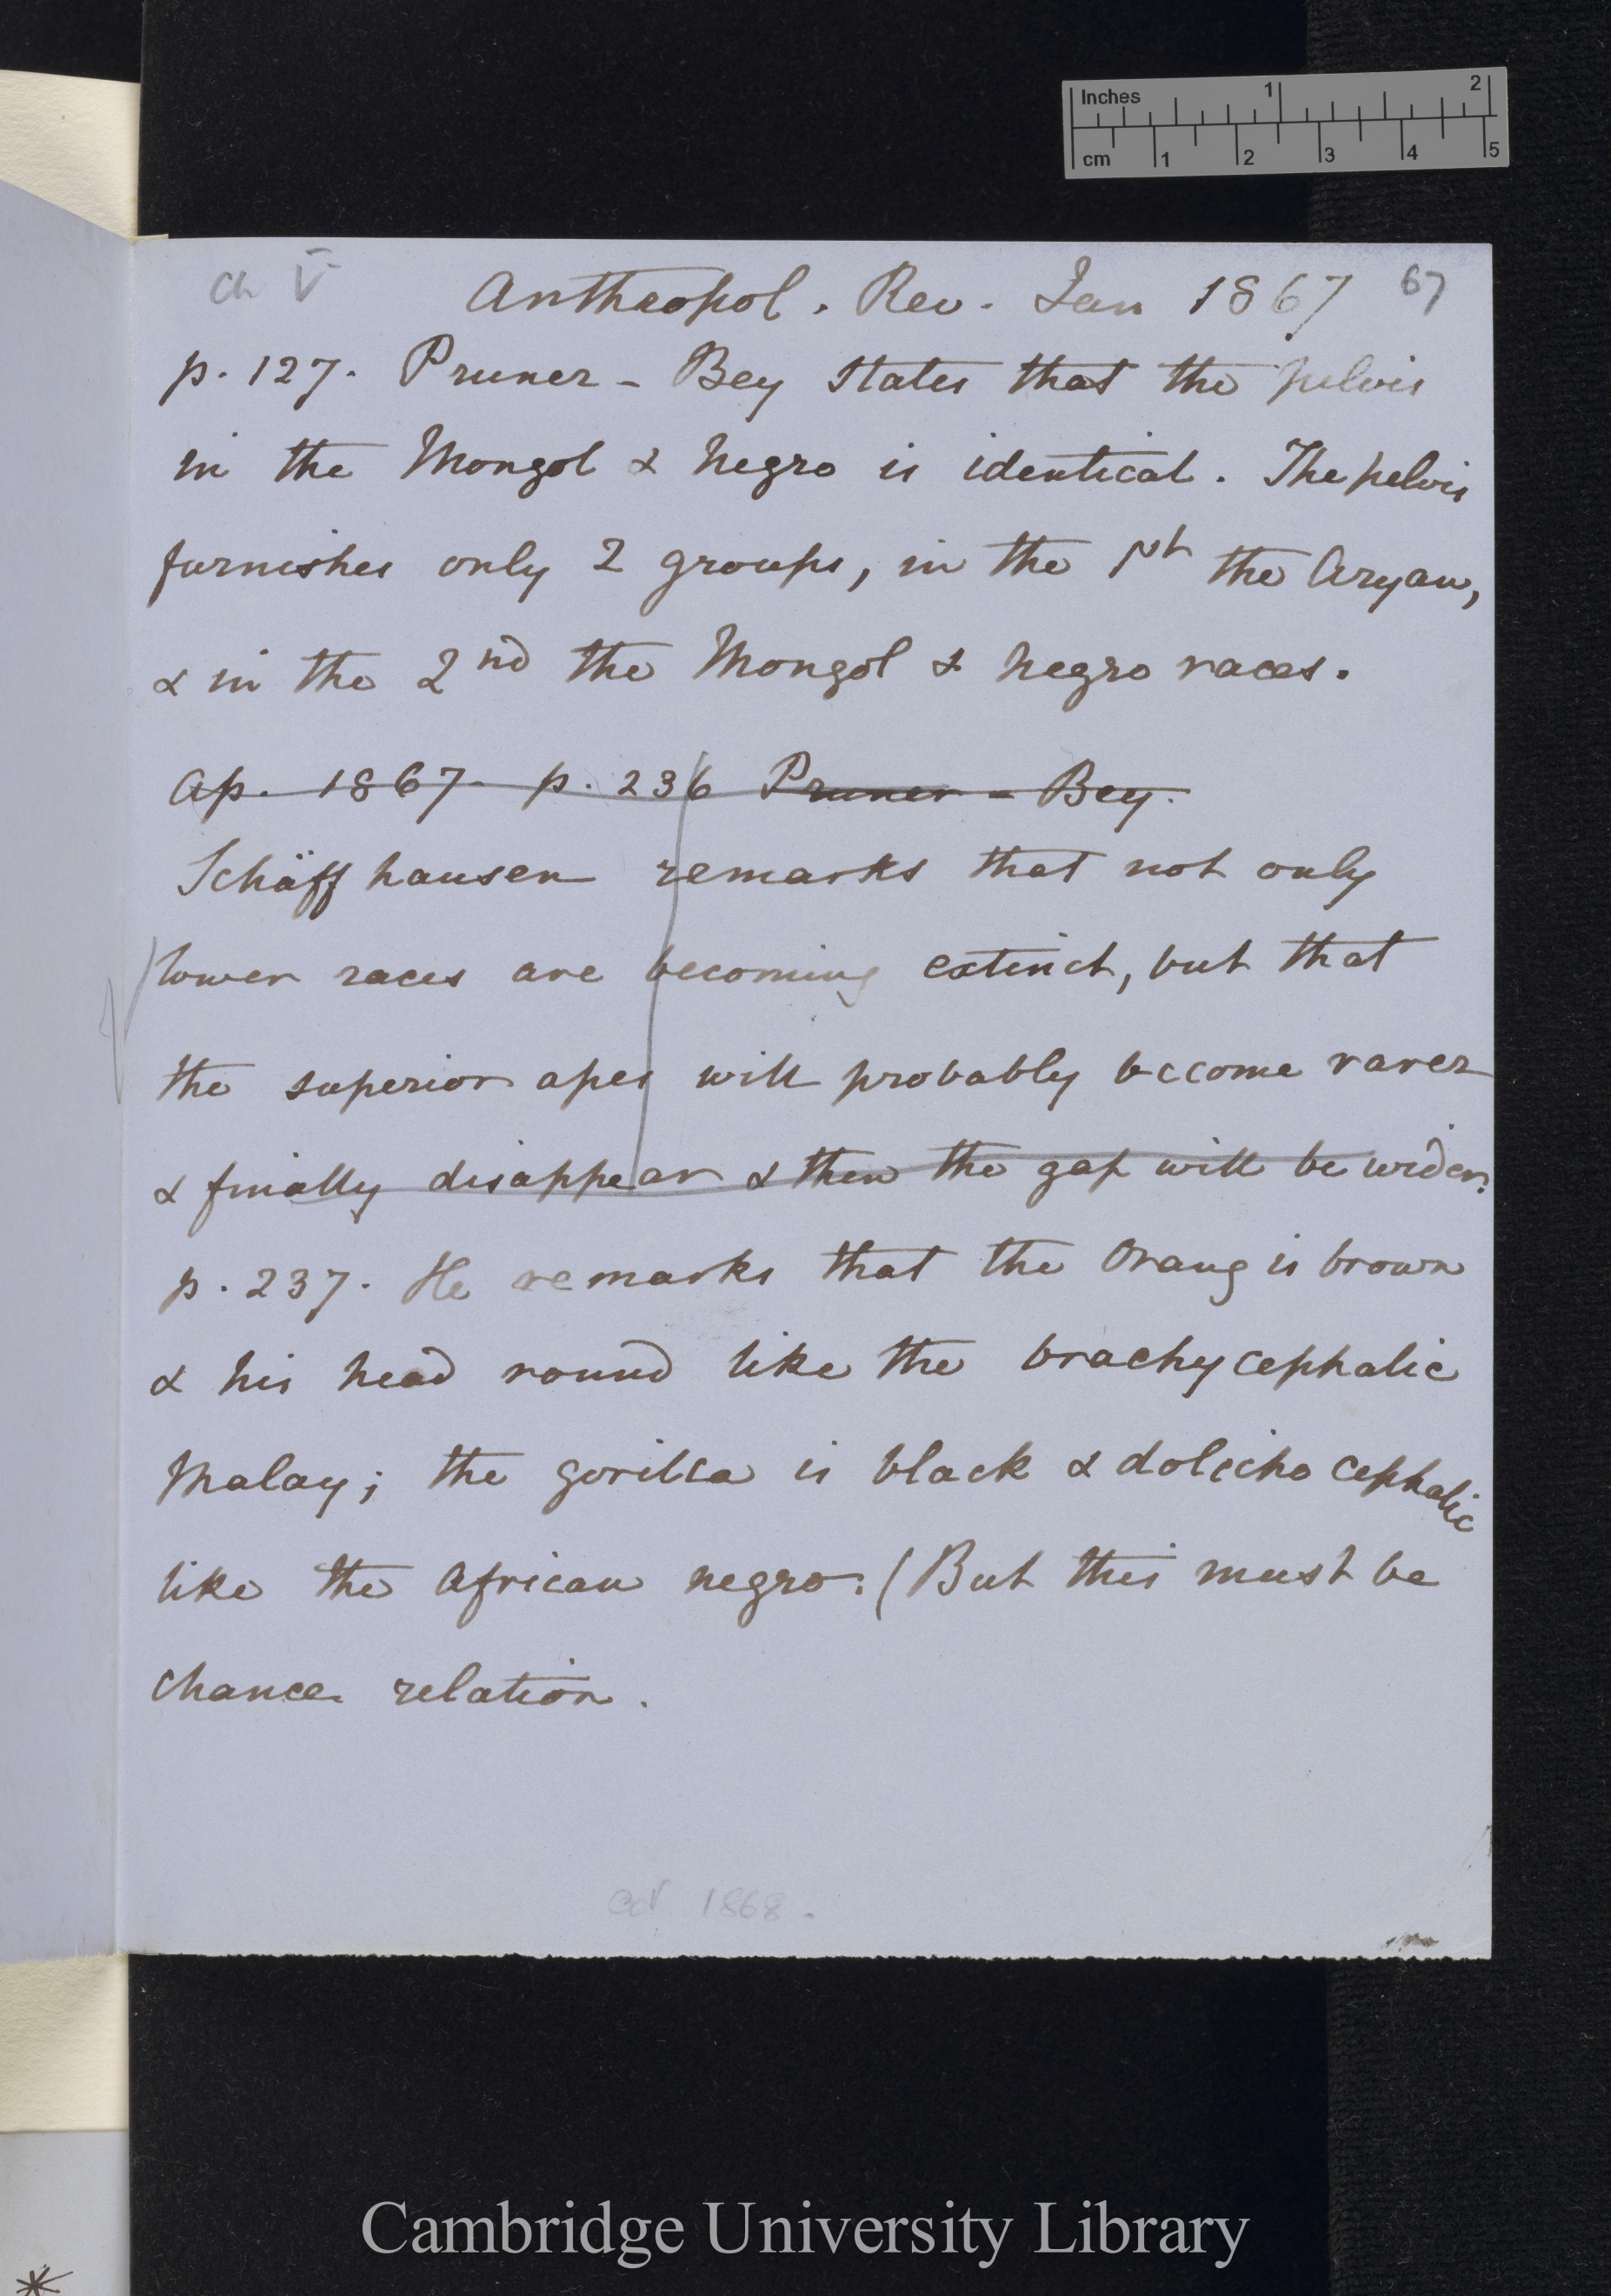 Inches 1 2
cm 1 2 3 4 5
Ch V Anthropol. Rev. Jan 1867 67
p. 127. Pruner-Bey states that the pelvis
in the Mongol & Negro is identical. The pelvis
furnishes only 2 groups, in the 1st the Aryan,
& in the 2nd the Mongol & Negro races.
Ap. 1867 p. 236 Pruner-Bey.
Schäffhausen remarks that not only
lower races are becoming extinct, but that
the superior apes will probably become rarer
& finally disappear & then the gap will be wider.
p. 237. He remarks that the Orang is brown
& his head round like the brachycephalic
Malay; the gorilla is black & dolichocephalic
like the African negro. (But this must be
chance relation.
1868.
Cambridge University Library